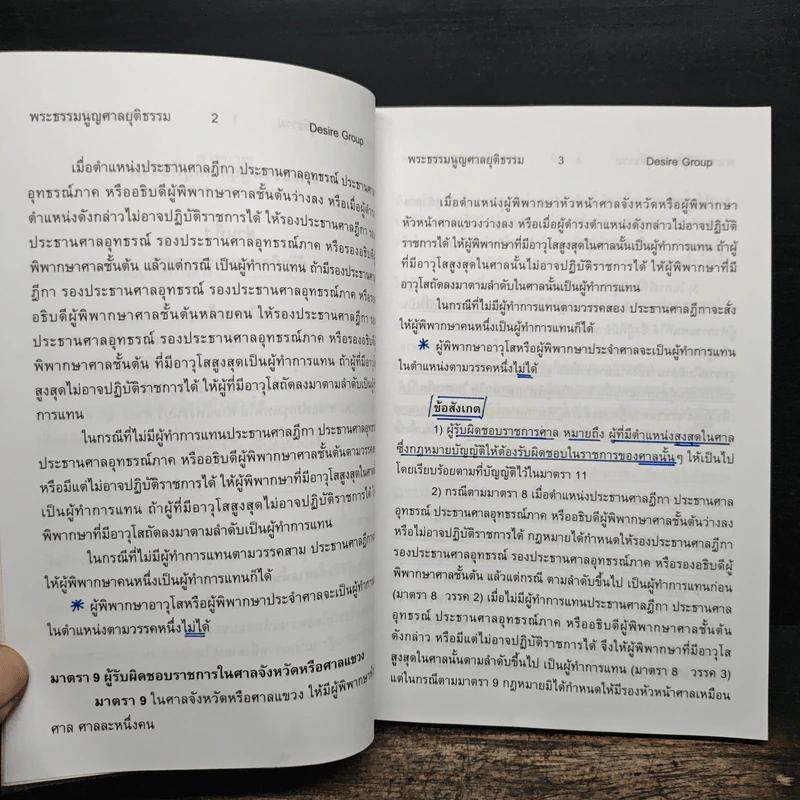 พระธรรมนูญศาลยุติธรรม 2 Desire Group
เมื่อตำแหน่งประธานศาลฎีกา ประธานศาลอุทธรณ์ ประธานศาล
อุทธรณ์ภาค หรืออธิบดีผู้พิพากษาศาลชั้นต้นว่างลง หรือเมื่อผู้ดำรง
ตำแหน่งดังกล่าวไม่อาจปฏิบัติราชการได้ ให้รองประธานศาลฎีกา
รองประธานศาลอุทธรณ์ รองประธานศาลอุทธรณ์ภาค หรือรองอธิบดี
ผู้พิพากษาศาลชั้นต้น แล้วแต่กรณี เป็นผู้ทำการแทน ถ้ามีรองประธานศาล
ฎีกา รองประธานศาลอุทธรณ์ รองประธานศาลอุทธรณ์ภาค หรือรอง
อธิบดีผู้พิพากษาศาลชั้นต้นหลายคน ให้รองประธานศาลฎีกา รอง
ประธานศาลอุทธรณ์ รองประธานศาลอุทธรณ์ภาค หรือรองอธิบดี
ผู้พิพากษาศาลชั้นต้น ที่มีอาวุโสสูงสุดเป็นผู้ทำการแทน ถ้าผู้ที่มีอาวุโส
สูงสุดไม่อาจปฏิบัติราชการได้ ให้ผู้ที่มีอาวุโสถัดลงมาตามลำดับเป็นผู้ทำ
การแทน
ในกรณีที่ไม่มีผู้ทำการแทนประธานศาลฎีกา ประธานศาลอุทธรณ์
ประธานศาลอุทธรณ์ภาค หรืออธิบดีผู้พิพากษาศาลชั้นต้นตามวรรคสอง
หรือมีแต่ไม่อาจปฏิบัติราชการได้ ให้ผู้พิพากษาที่มีอาวุโสสูงสุดในศาลนั้น
เป็นผู้ทำการแทน ถ้าผู้ที่มีอาวุโสสูงสุดไม่อาจปฏิบัติราชการได้ ให้ผู้
พิพากษาที่มีอาวุโสถัดลงมาตามลำดับเป็นผู้ทำการแทน
ในกรณีที่ไม่มีผู้ทำการแทนตามวรรคสาม ประธานศาลฎีกา
ให้ผู้พิพากษาคนหนึ่งเป็นผู้ทำการแทนก็ได้
* ผู้พิพากษาอาวุโสหรือผู้พิพากษาประจำศาลจะเป็นผู้ทำการแทน
ในตำแหน่งตามวรรคหนึ่งไม่ได้
มาตรา 9 ผู้รับผิดชอบราชการในศาลจังหวัดหรือศาลแขวง
มาตรา 9 ในศาลจังหวัดหรือศาลแขวง ให้มีผู้พิพากษาหัวหน้า
ศาล ศาลละหนึ่งคน
พระธรรมนูญศาลยุติธรรม 3 Desire Group
เมื่อตำแหน่งผู้พิพากษาหัวหน้าศาลจังหวัดหรือผู้พิพากษา
หัวหน้าศาลแขวงว่างลง หรือเมื่อผู้ดำรงตำแหน่งดังกล่าวไม่อาจปฏิบัติ
ราชการได้ ให้ผู้พิพากษาที่มีอาวุโสสูงสุดในศาลนั้นเป็นผู้ทำการแทน ถ้าผู้
ที่มีอาวุโสสูงสุดในศาลนั้นไม่อาจปฏิบัติราชการได้ ให้ผู้พิพากษาที่มี
อาวุโสถัดลงมาตามลำดับในศาลนั้นเป็นผู้ทำการแทน
ในกรณีที่ไม่มีผู้ทำการแทนตามวรรคสอง ประธานศาลฎีกาจะสั่ง
ให้ผู้พิพากษาคนหนึ่งเป็นผู้ทำการแทนก็ได้
* ผู้พิพากษาอาวุโสหรือผู้พิพากษาประจำศาลจะเป็นผู้ทำการแทน
ในตำแหน่งตามวรรคหนึ่งไม่ได้
ข้อสังเกต
1) ผู้รับผิดชอบราชการศาล หมายถึง ผู้ที่มีตำแหน่งสูงสุดในศาล
ซึ่งกฎหมายบัญญัติให้ต้องรับผิดชอบในราชการของศาลนั้นๆ ให้เป็นไป
โดยเรียบร้อยตามที่บัญญัติไว้ในมาตรา 11
2) กรณีตามมาตรา 8 เมื่อตำแหน่งประธานศาลฎีกา ประธานศาล
อุทธรณ์ ประธานศาลอุทธรณ์ภาค หรืออธิบดีผู้พิพากษาศาลชั้นต้นว่างลง
หรือไม่อาจปฏิบัติราชการได้ กฎหมายได้กำหนดให้รองประธานศาลฎีกา
รองประธานศาลอุทธรณ์ รองประธานศาลอุทธรณ์ภาค หรือรองอธิบดีผู้
พิพากษาศาลชั้นต้น แล้วแต่กรณี ตามลำดับขึ้นไป เป็นผู้ทำการแทนก่อน
(มาตรา 8 วรรค 2) เมื่อไม่มีผู้ทำการแทนประธานศาลฎีกา ประธานศาล
อุทธรณ์ ประธานศาลอุทธรณ์ภาค หรืออธิบดีผู้พิพากษาศาลชั้นต้น
ดังกล่าว หรือมีแต่ไม่อาจปฏิบัติราชการได้ จึงให้ผู้พิพากษาที่มีอาวุโส
สูงสุดในศาลนั้นตามลำดับขึ้นไป เป็นผู้ทำการแทน (มาตรา 8 วรรค 3)
แต่ในกรณีตามมาตรา 9 กฎหมายมิได้กำหนดให้มีรองหัวหน้าศาลเหมือน